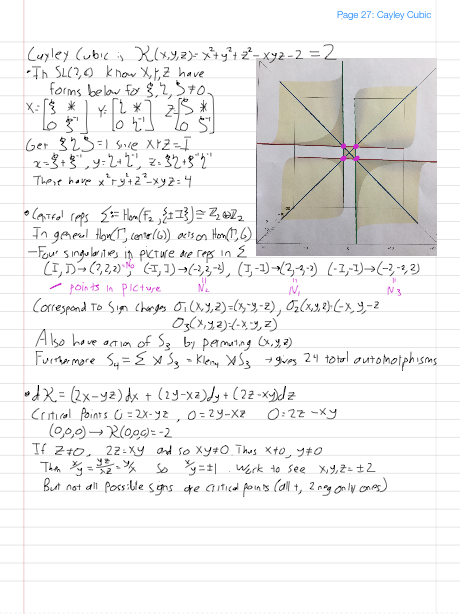 Page 27: Cayley Cubic
Cayley Cubic is K(x,y,z)=x²+y²+z²-xyz-2=2
• In SL(2,C) know X,Y,Z have
forms below for ξ,η,ζ≠0
X=[ξ * 0 ξ⁻¹] Y=[η * 0 η⁻¹] Z=[ζ * 0 ζ⁻¹]
Get ξηζ=1 since XYZ=I
x=ξ+ξ⁻¹, y=η+η⁻¹, z=ξη+ξ⁻¹η⁻¹
These have x²+y²+z²-xyz=4
• Central reps Σ=Hom(F₂,{±I})≅Z₂⊕Z₂
In general Hom(Γ,center(G)) acts on Hom(Γ,G)
- Four singularities in picture are reps in Σ
(I,I)→(2,2,2)=N₀ (-I,I)→(-2,2,-2), (I,-I)→(2,-2,-2) (-I,-I)→(-2,-2,2)
points in picture N₂ N₁ N₃
Correspond to sign changes σ₁(x,y,z)=(x,-y,-z), σ₂(x,y,z)=(-x,y,-z
σ₃(x,y,z)=(-x,-y,z)
Also have action of S₃ by permuting (x,y,z)
Furthermore S₄=Σ⋊S₃=Klein₄⋊S₃ → gives 24 total automorphisms
• dK=(2x-yz)dx+(2y-xz)dy+(2z-xy)dz
Critical Points 0=2x-yz, 0=2y-xz 0=2z-xy
(0,0,0)→K(0,0,0)=-2
If z≠0, 2z=xy and so xy≠0. Thus x≠0, y≠0
Then x/y=yz/xz=y/x so x/y=±1. Work to see x,y,z=±2
But not all possible signs are critical points (all +, 2 neg only ones)